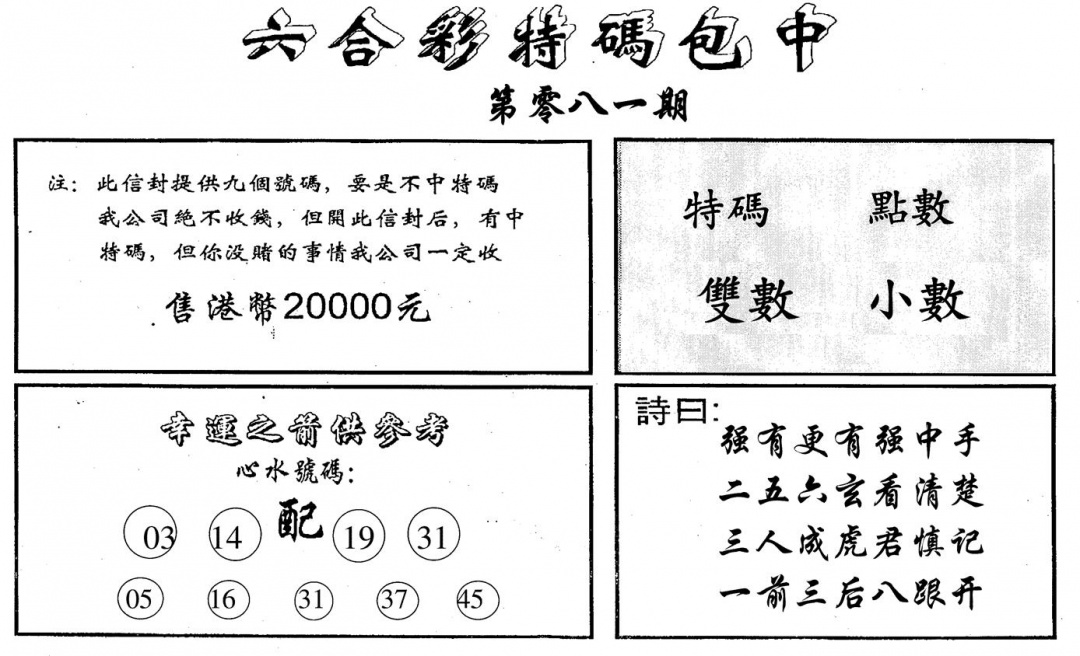 六合彩特碼包中
第零八一期
注：此信封提供九個號碼，要是不中特碼
我公司絕不收錢，但開此信封后，有中
特碼，但你没賭的事情我公司一定收
售港幣20000元
特碼 點數
雙數 小數
幸運之箭供參考
心水號碼：
03 14 配 19 31
05 16 31 37 45
詩曰：
强有更有强中手
二五六玄看清楚
三人成虎君慎记
一前三后八跟开